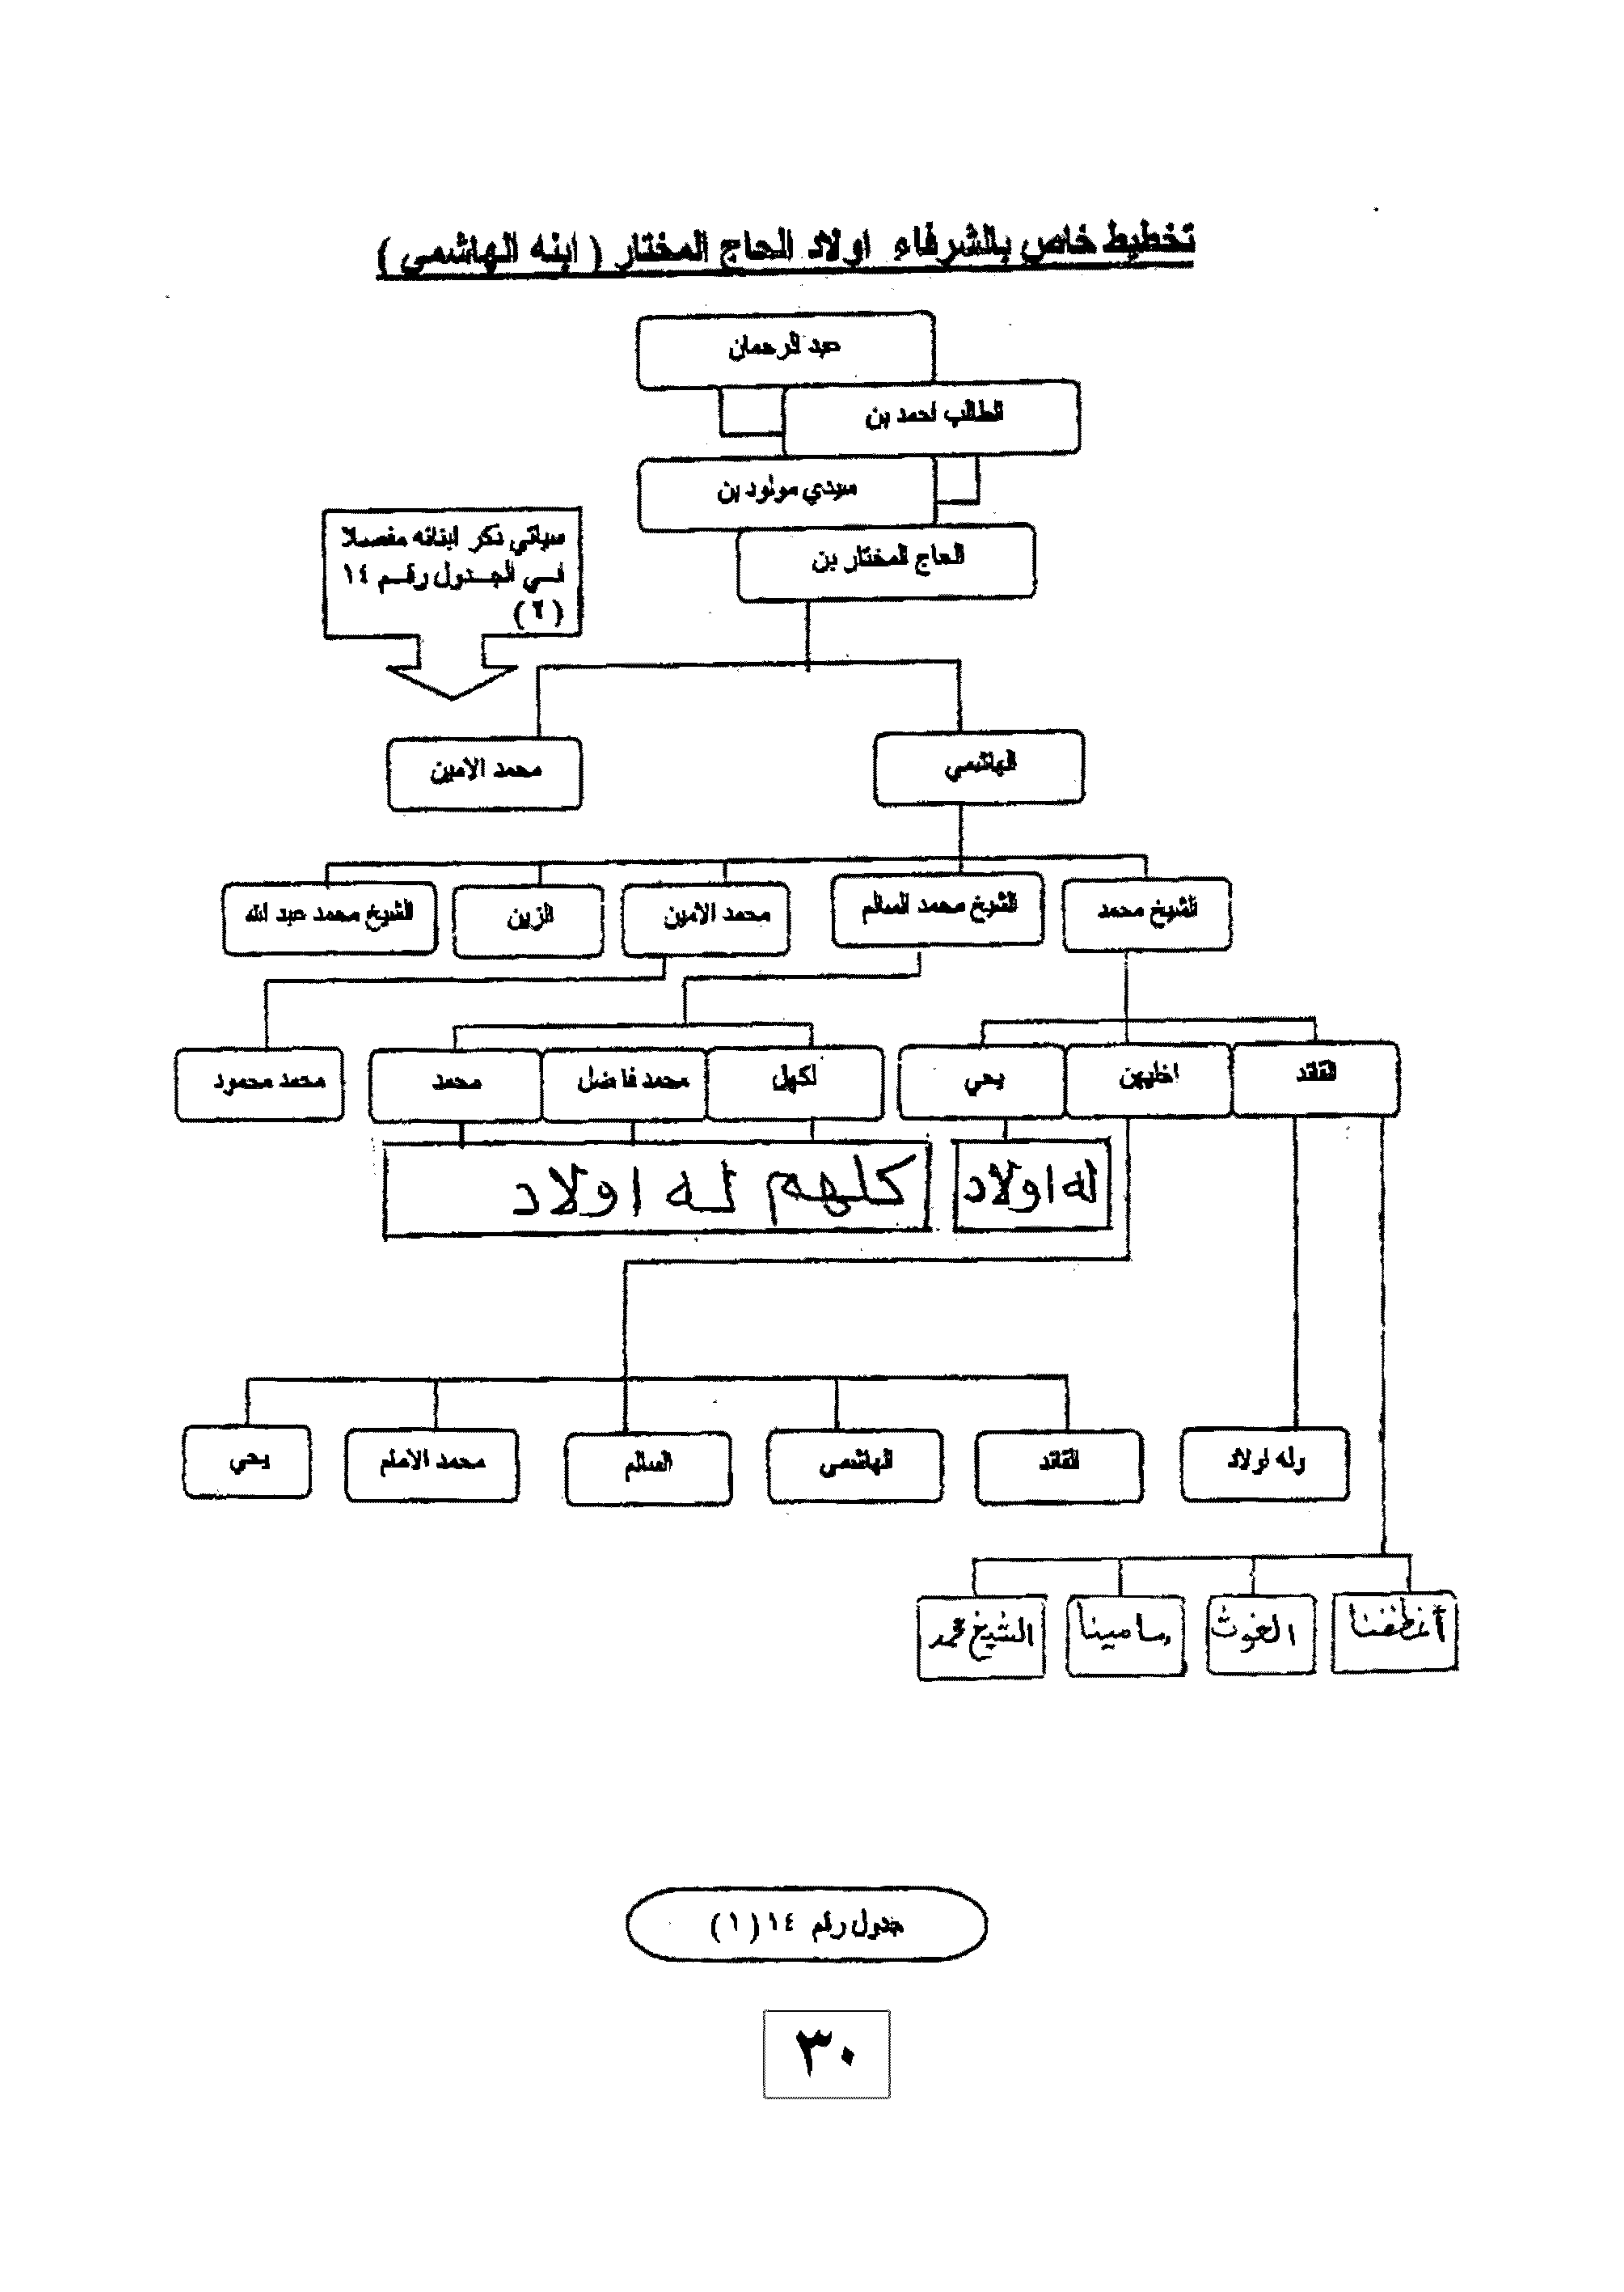 تخطيط خاص بالشرفاء اولاد الحاج المختار ( ابنه الهاشمي )
عبد الرحمان
الطالب احمد بن
سيدي مولود بن
الحاج المختار بن
سياتي ذكر ابنائه مفصلا
في الجدول رقم ١٤
(٦)
الهاشمي
محمد الامين
الشيخ محمد
الشيخ محمد السالم
محمد الامين
الزين
الشيخ محمد عبد الله
القائد
اخليهن
يحي
لكهل
محمد فاضل
محمد
محمد محمود
له اولاد
كلهم له اولاد
وله اولاد
القائد
الهاشمي
السالم
محمد الامام
يحي
الغوث
مامينا
الشيخ محمد
جدول رقم ١٤ ( ١ )
٣٠